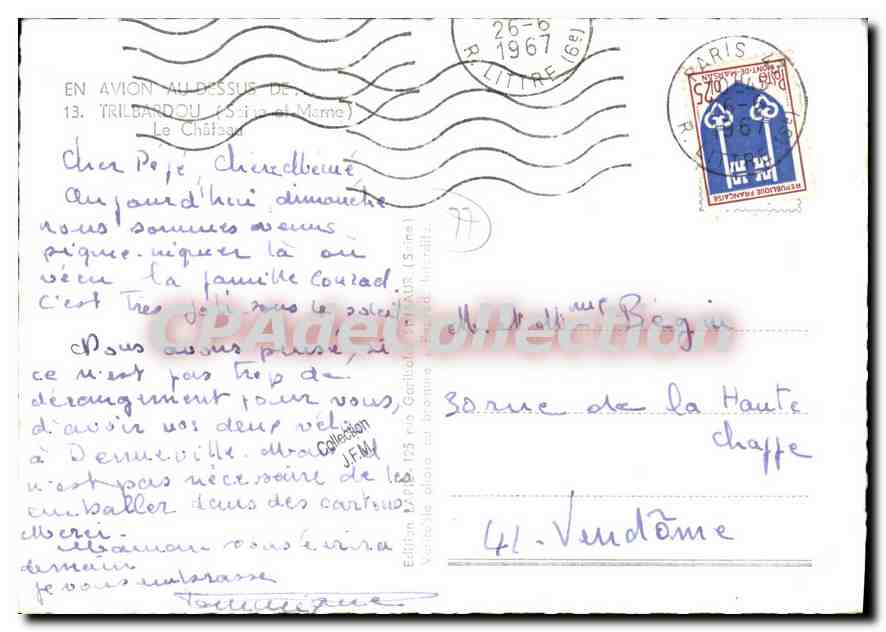 EN AVION AU-DESSUS DE...
13. TRILBARDOU (Seine-et-Marne)
Le Château
Cher Pépé, Chère Mémé
Aujourd'hui, dimanche
nous sommes venus
pique-niquer là où
vécu la famille Conrad.
C'est très joli sous le soleil.
Nous avons pensé, si
ce n'est pas trop de
dérangement pour vous,
d'avoir nos deux vél
à Denneville. Ma
n'est pas nécessaire de les
emballer dans des cartons.
Merci.
Maman vous écrira
demain
je vous embrasse
Dominique
Edition LAPIE, 125 rue Garibaldi, ST-MAUR (Seine)
Véritable photo au bromure - Reprod. interdite.
77
26-6
1967
R. LITTRE (6e)
PARIS VI
6-6
1967
R. LITTRE
Poste 0,25
MONT-DE-MARSAN
REPUBLIQUE FRANÇAISE
M. et Mme Bégin
30 rue de la Haute
Chappe
41 - Vendôme
Collection
J.F.M
CPAdeCollection.com